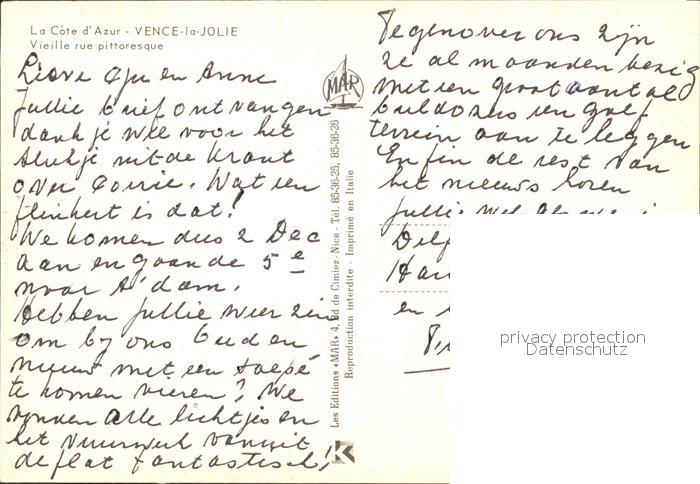 La Côte d'Azur - VENCE-la-JOLIE
Vieille rue pittoresque
Lieve en Anne
Jullie brief ontvangen
dank je wel voor het
stukje uit de krant
over Corrie. Wat een
flinkert is dat!
We komen dus 2 Dec
aan en gaan de 5e
naar A'dam.
Hebben jullie weer zin
om bij ons oud en
nieuw met een soepé
te komen vieren? We
vonden alle lichtjes en
het vuurwerk vanuit
de flat fantastisch!
MAR
Les Editions «MAR» 4, Bd de Cimiez - Nice - Tél. 85-36-25, 85-36-26
Reproduction interdite - Imprimé en Italie
K
Tegenover ons zijn
ze al maanden bezig
met een groot aantal
buldozers een golf
terrein aan te leggen
Enfin de rest van
het nieuws horen
jullie wel als we
en
privacy protection
Datenschutz